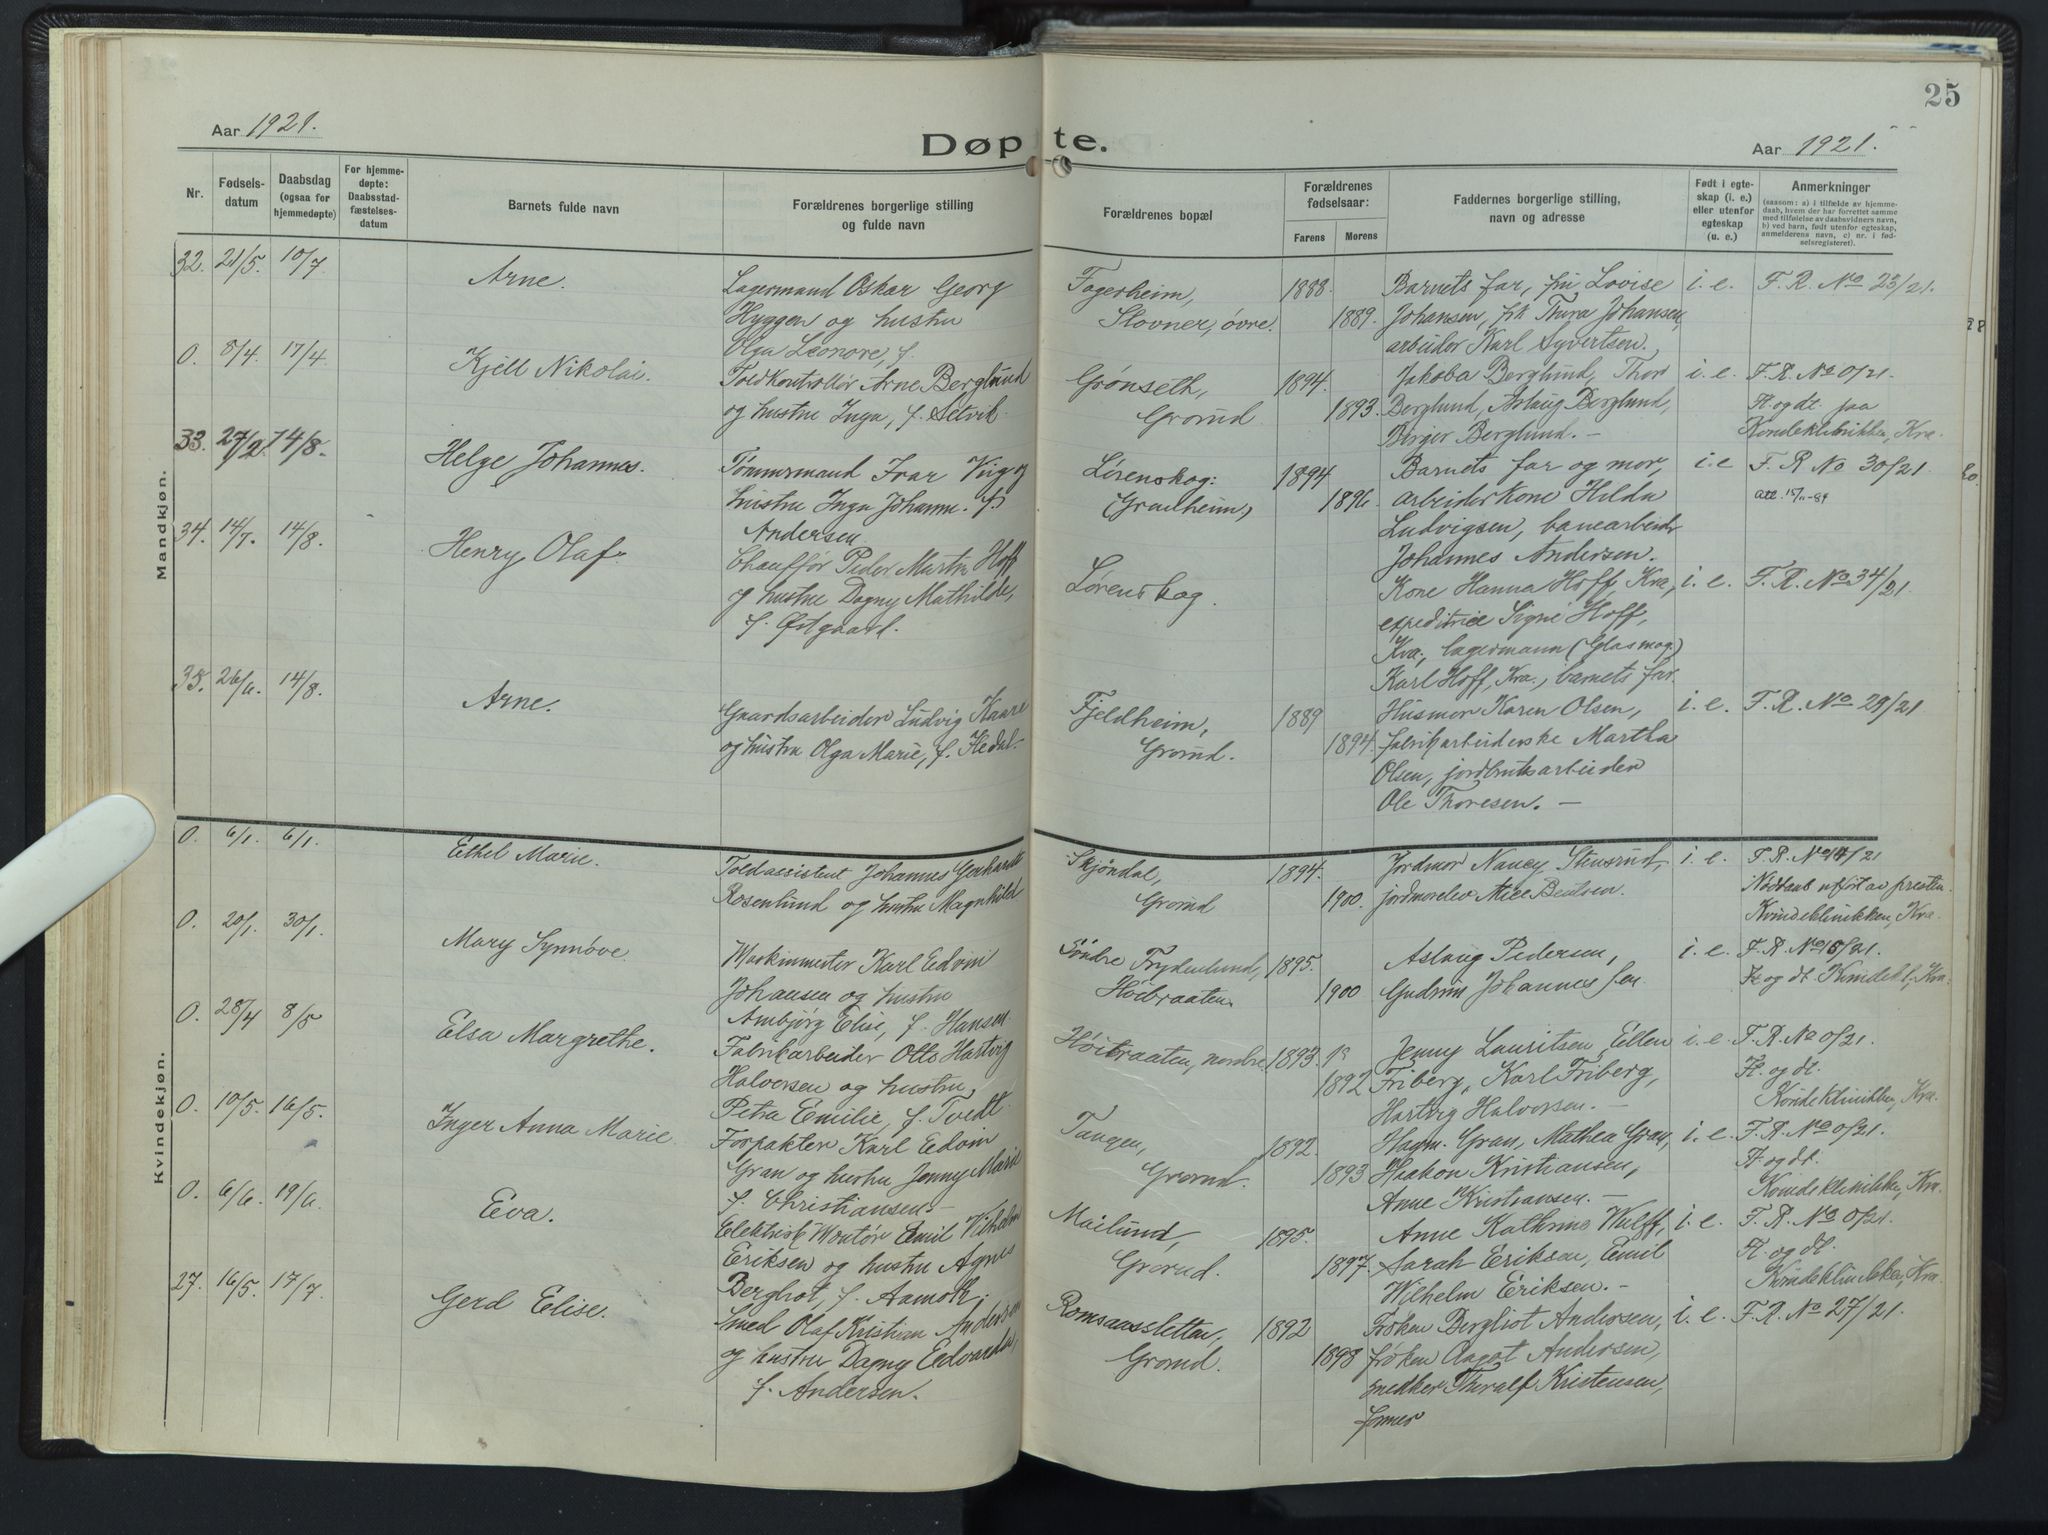 25
Aar 1921.
Døpte.
Aar 1921.
Nr.
Fødsels-
datum
Daabsdag
(ogsaa for
hjemmedøpte)
For hjemme-
døpte:
Daabsstad-
fæstelses-
datum
Barnets fulde navn
Forældrenes borgerlige stilling
og fulde navn
Forældrenes bopæl
Forældrenes
fødselsaar:
Farens
Mørens
Faddernes borgerlige stilling,
navn og adresse
Født i egte-
skap (i. e.)
eller utenfor
egteskap
(u. e.)
Anmerkninger
(saasom: a) i tilfælde av hjemme-
daab, hvem der har forrettet samme
med tilføielse av daabsvidners navn,
b) ved barn, født utenfor egteskap,
anmelderens navn, c) nr. i fød-
selsregisteret).
Mandkjøn.
32. 21/5. 10/7
Arne.
Lagermand Oskar Georg
Hyggen og hustru
Olga Leonore, f.
Fagerheim,
Stovner, øvre.
1888.
1889.
Barnets far, frk Lovise
Johansen, frk Thora Johansen,
arbeider Karl Syvertsen.
i. e.
F. R. No 23/21.
0. 8/4. 17/4
Kjell Nikolai.
Toldkontrollør Arne Berglund
og hustru Inga, f. Setvik.
Grønseth,
Grorud.
1894.
1893.
Jakoba Berglund, Thor
Berglund, Aslaug Berglund,
Birger Berglund. —
i. e.
F. R. No 0/21.
Ft. og dt. paa
Kvindeklinikken, Kra.
33. 27/2. 14/8.
Helge Johannes.
Tømmermand Ivar Vig og
hustru Inga Johanne. f.
Andersen.
Lørenskog:
(Granheim)
1894
1896.
Barnets far og mor,
arbeiderkone Hilda
Ludvigsen, banearbeider
Johannes Andersen.
i. e
F. R No 30/21
att. 15/11-84
34. 14/7. 14/8.
Henry Olaf.
Chauffør Peder Martin Hoff
og hustru Dagny Mathilde,
f. Østgaard.
Lørenskog.
Kone Hanna Hoff, Kra.,
expeditrice Signe Hoff,
Kra., lagermann (Glasmag.)
Karl Hoff, Kra., barnets far.
i. e.
F. R. No 34/21
35. 26/6. 14/8.
Arne.
Gaardsarbeider Ludvig Kaare
og hustru Olga Marie, f. Hedal.-
Fjeldheim,
Grorud.
1889
1894.
Husmor Karen Olsen,
fabrikarbeiderske Martha
Olsen, jordbruksarbeider
Ole Thoresen. —
i. e.
F. R. No 29/21
Kvindekjøn.
0. 6/1. 6/1.
Ethel Marie.
Toldassistent Johannes Gerhardt
Rosenlund og hustru Magnhild
Skjøndal,
Grorud
1894.
1900.
Jordmor Nancy Stensrud,
jordmorelev Alice Bentsen.
i. e.
F. R. No 17/21
Nøddaab utført av presten
Kvindeklinikken, Kra.
0. 20/1. 30/1.
Mary Synnøve.
Maskinmester Karl Edvin
Johansen og hustru
Ambjørg Elise, f. Hansen.
Søndre Frydenlund,
Høibraaten.
1895.
1900
Aslaug Pedersen,
Gudrun Johannessen.
i. e.
F. R. No 18/21.
Ft og dt Kvindekl., Kra.
0. 28/4 8/5
Elsa Margrethe.
Fabrikarbeider Otto Hartvig
Halvorsen og hustru,
Petra Emilie, f. Tvedt.
Høibraaten, nordre
1893.
1892
Jenny Lauritsen, Ellen
Friberg, Karl Friberg,
Hartvig Halvorsen. —
i. e
F. R. No 0/21.
Ft. og dt.
Kvindeklinikken, Kra.
0. 10/5. 16/5.
Inger Anna Marie.
Forpakter Karl Edvin
Gran og hustru Jenny Marie
f. Christiansen.-
Tangen,
Grorud.
1892.
1893
Hagm. Gran, Mathea Gran,
Haakon Kristiansen,
Anne Kristiansen. —
i. e.
F. R. No 0/21.
Ft. og dt.
Kvindeklinikken, Kra.
0. 6/6. 19/6.
Eva.
Elektrisk Montør Emil Vilhelm
Eriksen og hustru Agnes
Bergliot, f. Aamoth;
Mailund,
Grorud.
1895.
1897.
Anne Kathrine Wulff,
Sarah Eriksen, Emil
Wilhelm Eriksen. -
i. e.
F. R. No 0/21.
Ft. og dt.
Kvindeklinikken, Kra.
27. 16/5. 17/7.
Gerd Elise.
Smed Olaf Kristian Andersen
og hustru Dagny Edvarda,
f. Andersen.
Romsaassletten,
Grorud.
1892
1898
Frøken Bergliot Andersen,
frøken Aagot Andersen,
snedker Thoralf Kristensen,
former
i. e.
F. R. No 27/21.